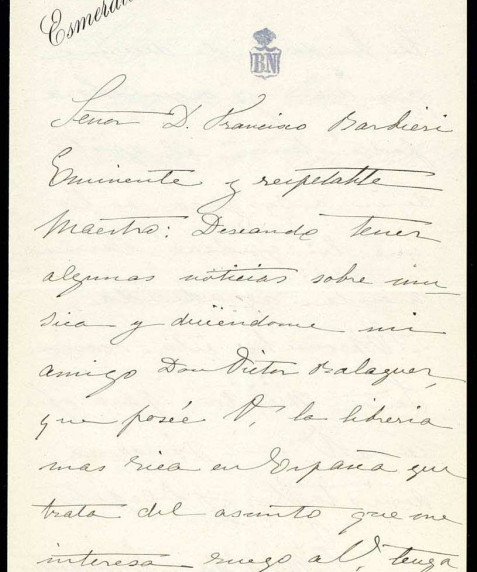 Esmeral
BN
Señor D. Francisco Barbieri
Eminente y respetable
Maestro: Deseando tener
algunas noticias sobre mu
sica y diciendome mi
amigo Don Victor Balaguer,
que poseé V. la libreria
mas rica en España que
trata del asunto que me
interesa ruego a V. tenga